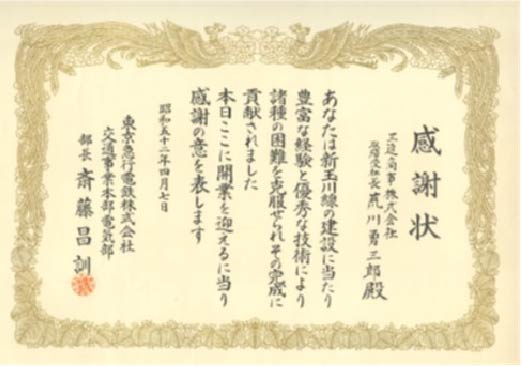 感謝状
商事株式会社
川勇三郎殿
あなたは新玉川線の建設に当たり
豊富な経験と優秀な技術により
諸種の困難を克服せられその完成に
貢献されました
本日ここに開業を迎えるに当り
感謝の意を表します
昭和五十二年四月七日
東京急行電鉄株式会社
交通事業本部電気部
部長 斎藤昌訓